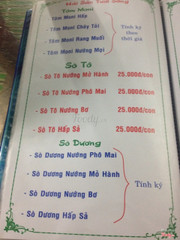 Hải Sản Tươi Sống
Tôm Muni
- Tôm Muni Hấp
- Tôm Muni Cháy Tỏi
- Tôm Muni Rang Muối
- Tôm Muni Nướng Mọi
Tính ký
theo
thời giá
Sò Tô
- Sò Tô Nướng Mỡ Hành 25.000đ/con
- Sò Tô Nướng Phô Mai 25.000đ/con
- Sò Tô Nướng Bơ 25.000đ/con
- Sò Tô Hấp Sả 25.000đ/con
Sò Dương
- Sò Dương Nướng Phô Mai
- Sò Dương Nướng Mỡ Hành
- Sò Dương Nướng Bơ
- Sò Dương Hấp Sả
Tính ký